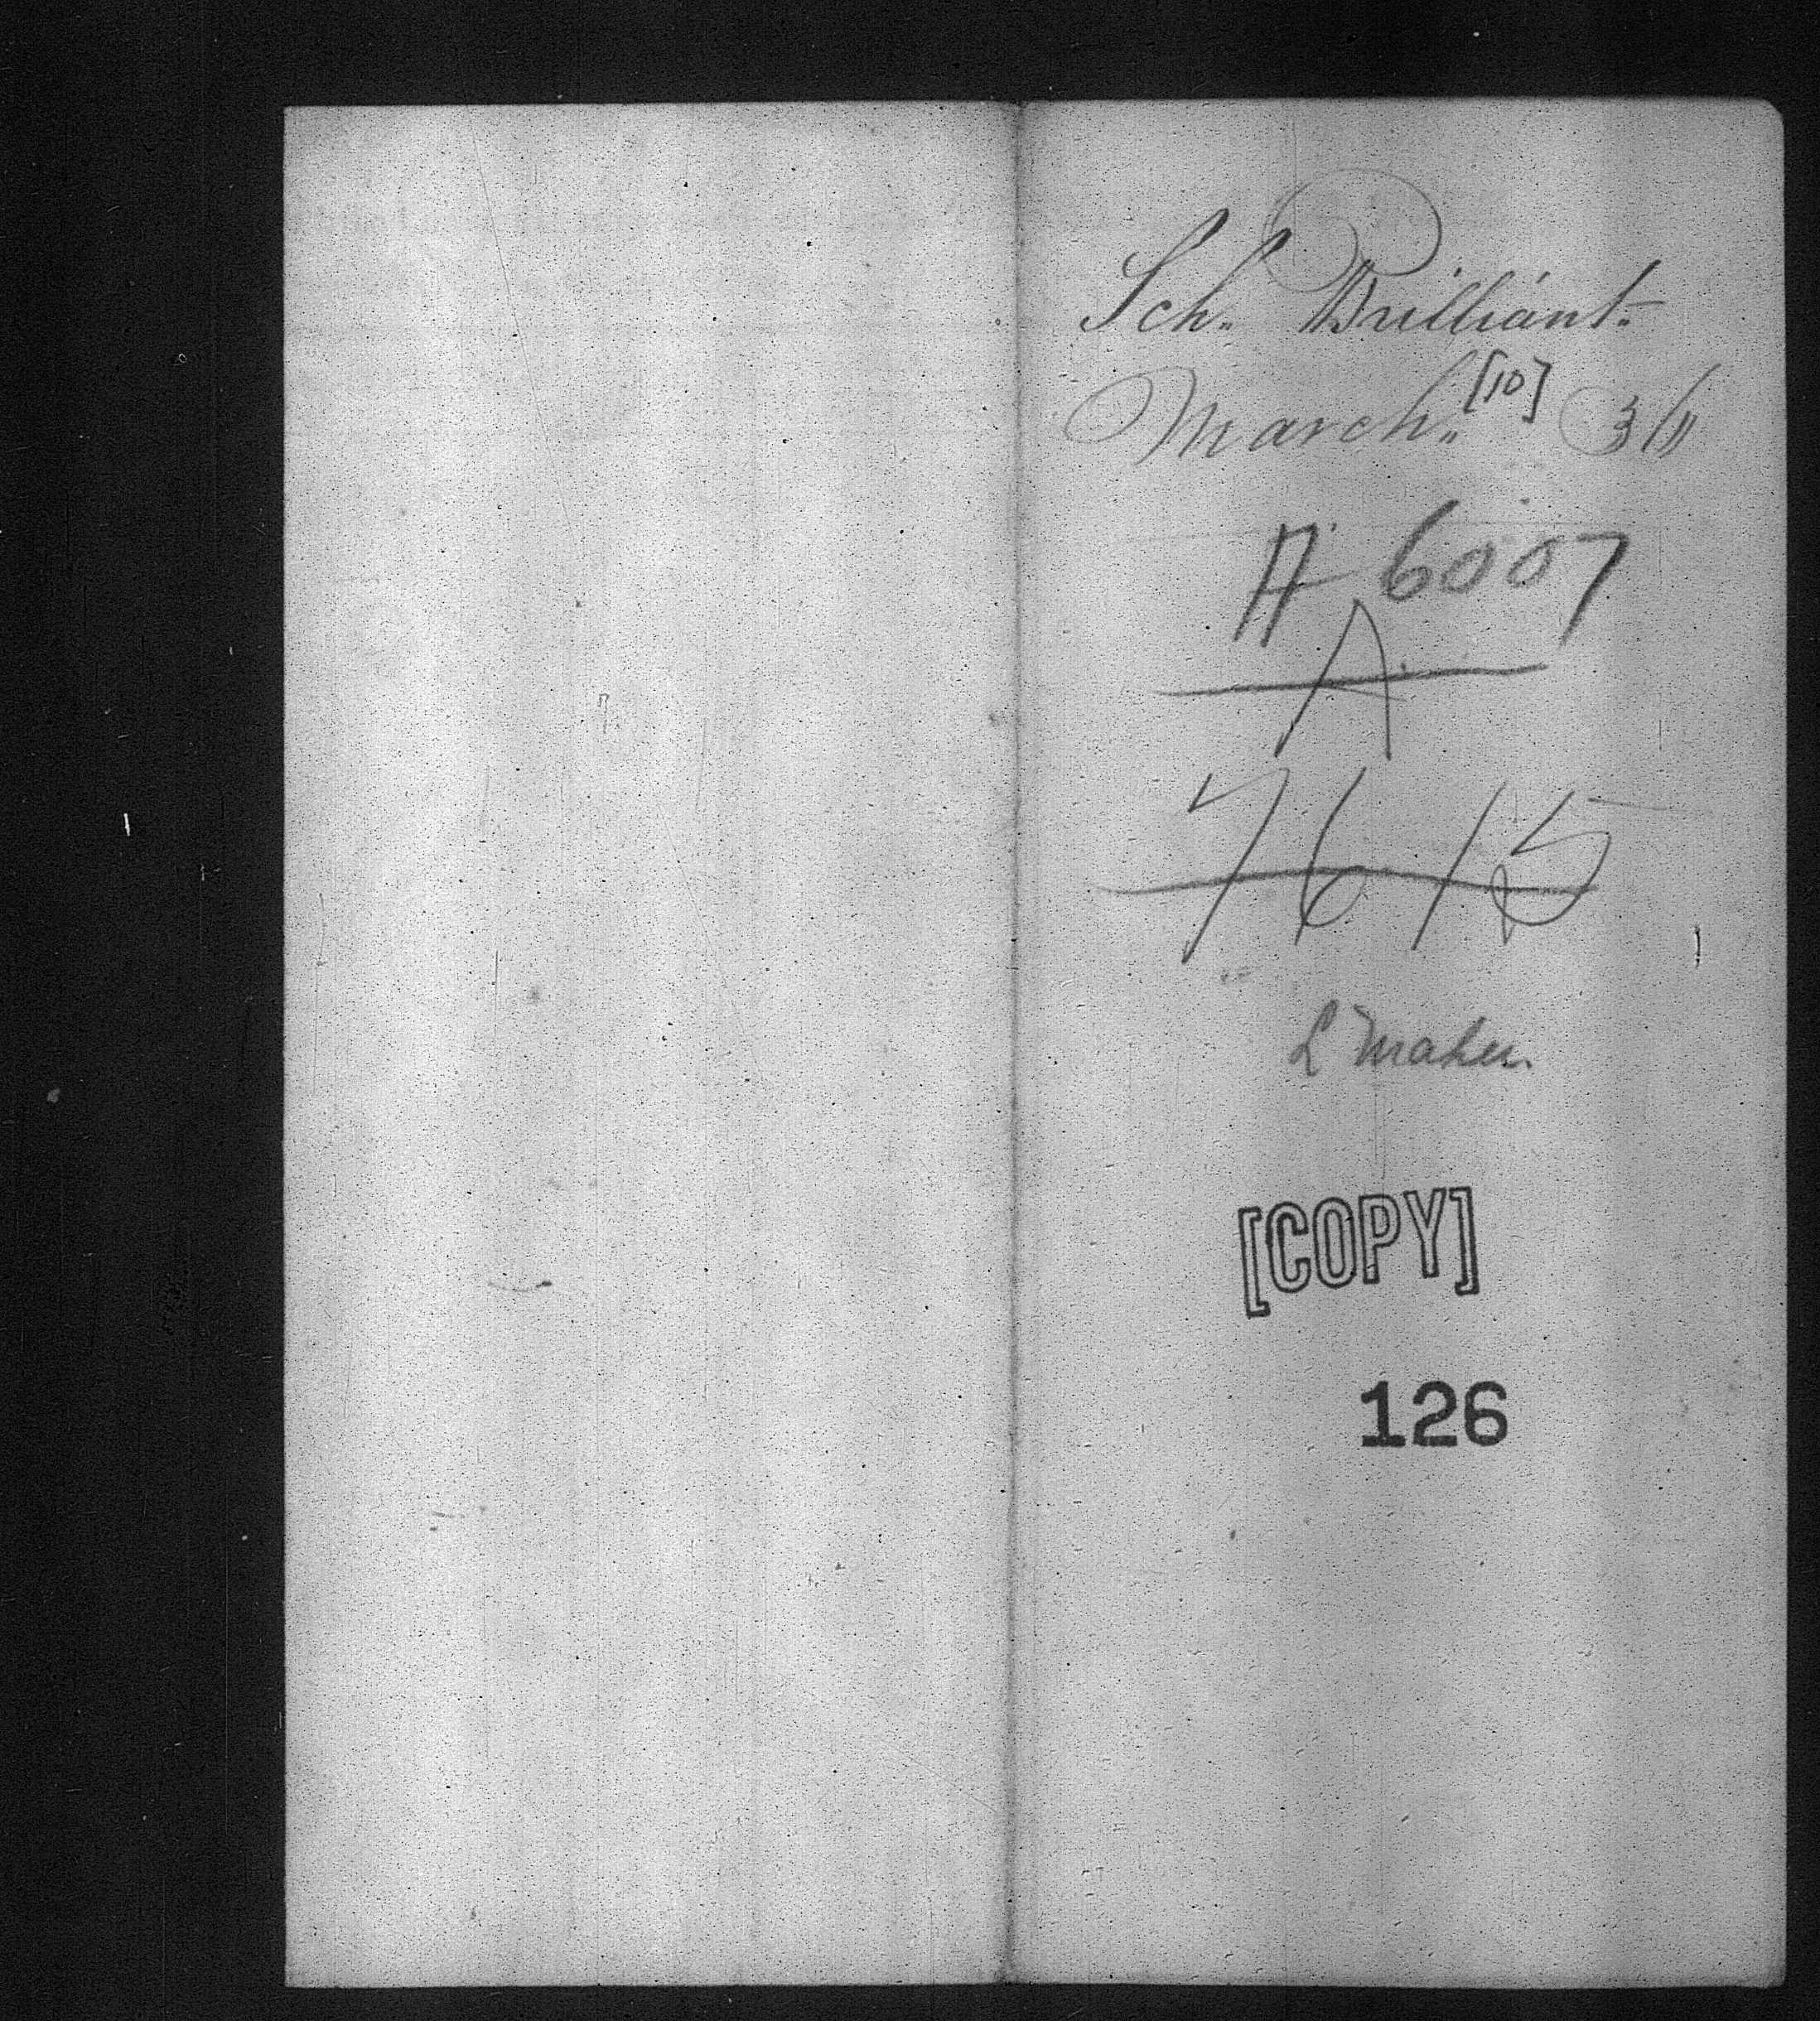 Sch. Brilliant.
March. [10] 36
A 6007
A
7615
L Maher.
[COPY]
126